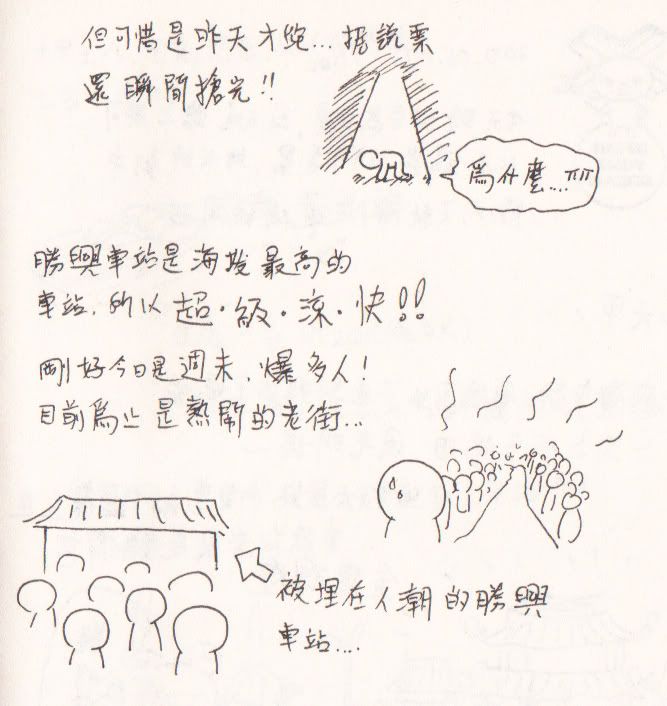 但可惜是昨天才跑...据說票
還瞬間搶光!!
為什麼...
勝興車站是海拔最高的
車站.所以超·級·涼·快!!
剛好今日是週末.爆多人!
目前為止是熱鬧的老街...
被埋在人潮的勝興
車站....